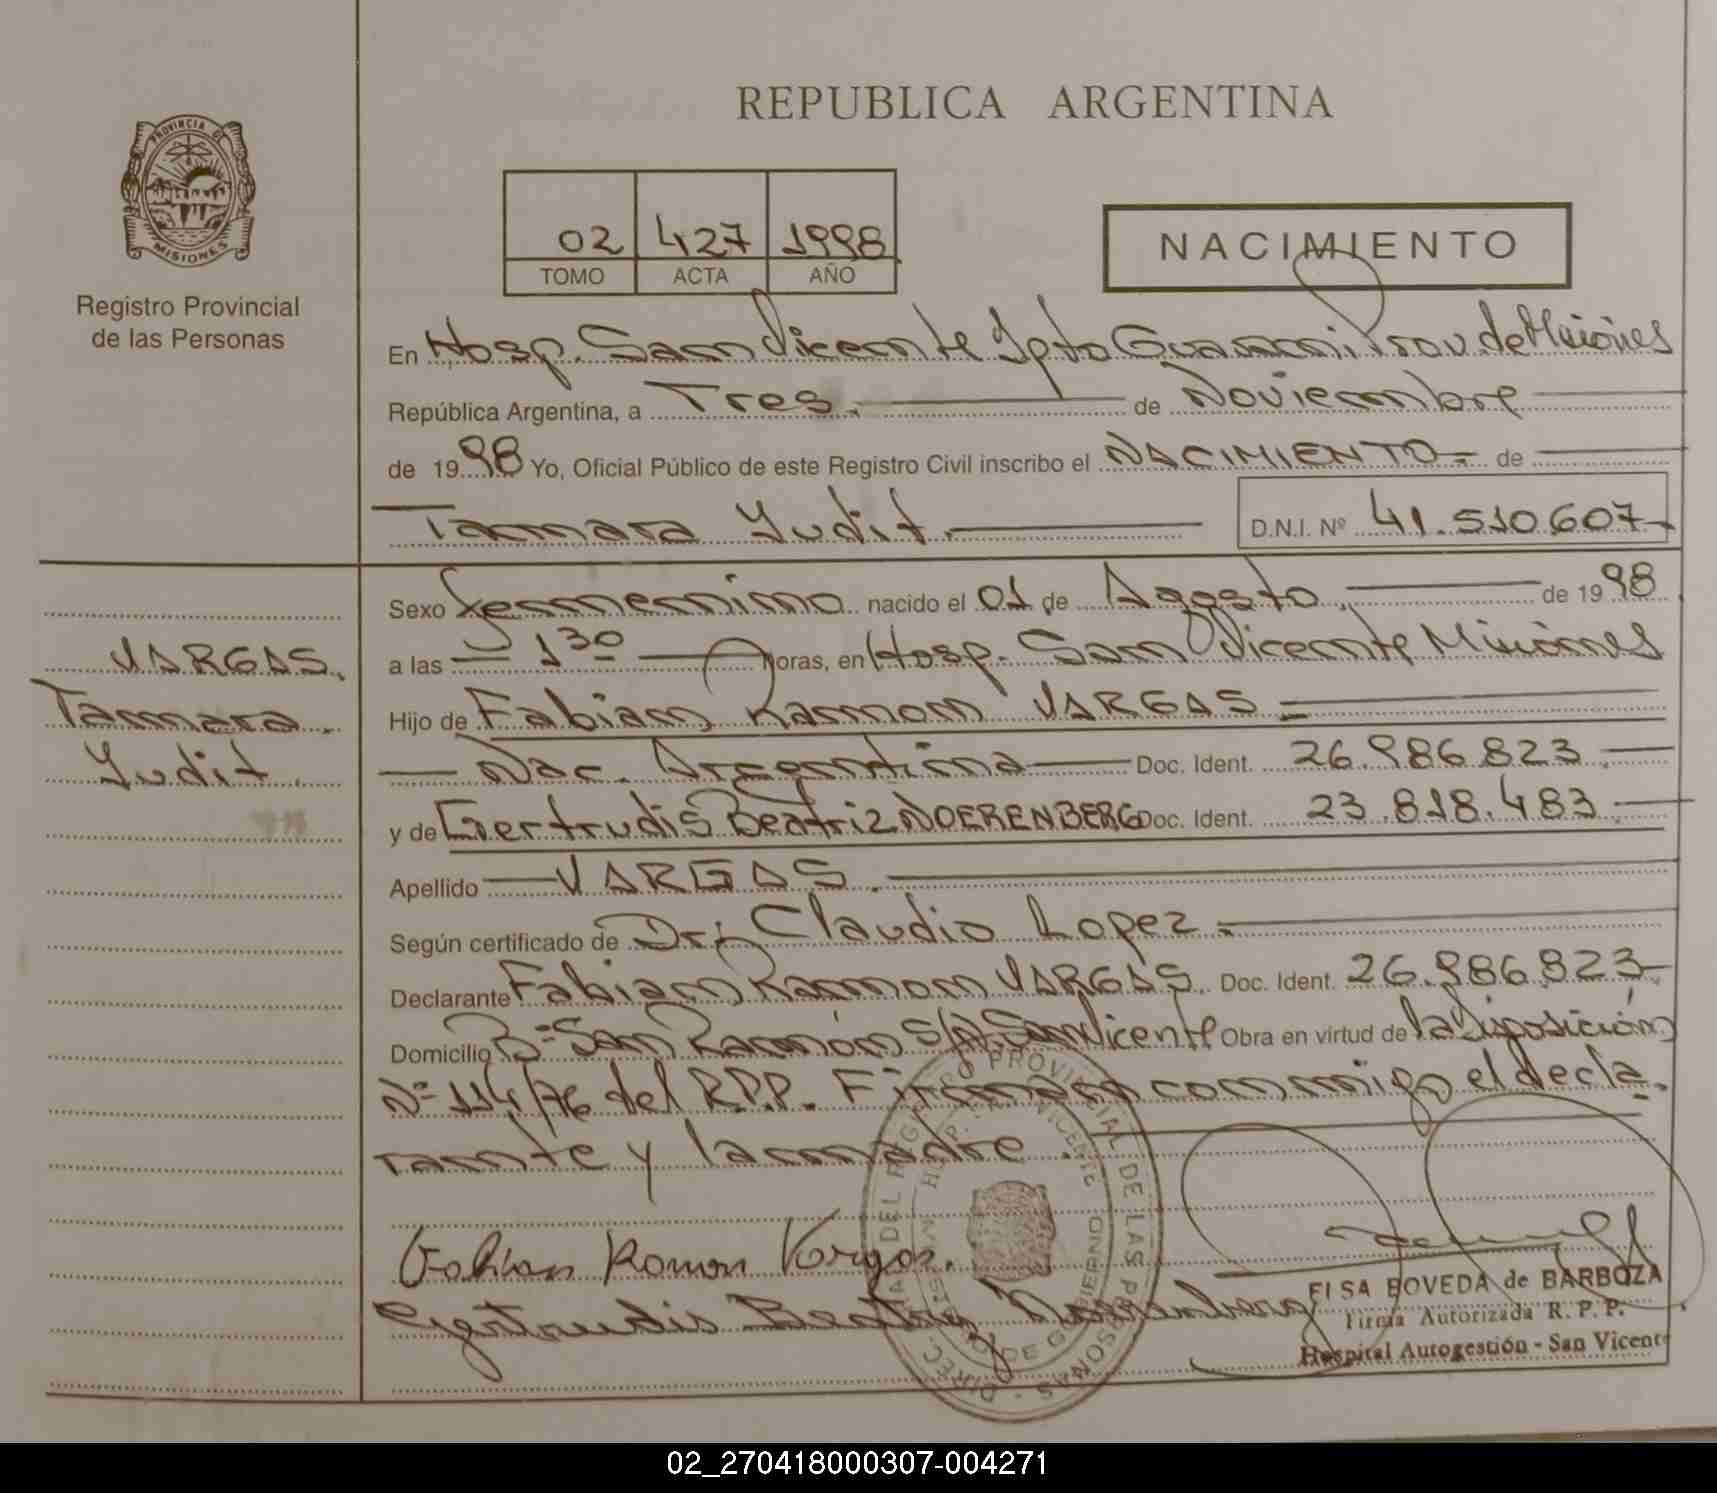 PROVINCIA DE
MISIONES
Registro Provincial
de las Personas
REPUBLICA ARGENTINA
02 427 1998
TOMO ACTA AÑO
NACIMIENTO
En Hosp. San Vicente Dpto Guarani Prov. de Misiones
República Argentina, a Tres. de Noviembre
de 1998 Yo, Oficial Público de este Registro Civil inscribo el NACIMIENTO de
Tamara Yudit. D.N.I. Nº 41.510.607
VARGAS.
Tamara
Yudit.
Sexo femenino nacido el 01 de Agosto de 1998
a las 1 30 horas, en Hosp. San Vicente Misiones
Hijo de Fabian Ramon VARGAS
Nac. Argentina Doc. Ident. 26.986.823.
y de Gertrudis Beatriz NOERENBERG Doc. Ident. 23.818.483.
Apellido VARGAS.
Según certificado de Dr. Claudio Lopez.
Declarante Fabian Ramon VARGAS. Doc. Ident. 26.986.823
Domicilio Bº San Ramón S/N San Vicente Obra en virtud de la Disposición
Nº 114/76 del R.P.P. Firman conmigo el decla
rante y la madre.
Fabian Ramon Vargas.
Gertrudis Beatriz Noerenberg
DIREC. DEL REGISTRO PROVINCIAL DE LAS PERSONAS -
DE GOBIERNO
ELSA BOVEDA de BARBOZA
Firma Autorizada R. P. P.
Hospital Autogestión - San Vicente
02_270418000307-004271